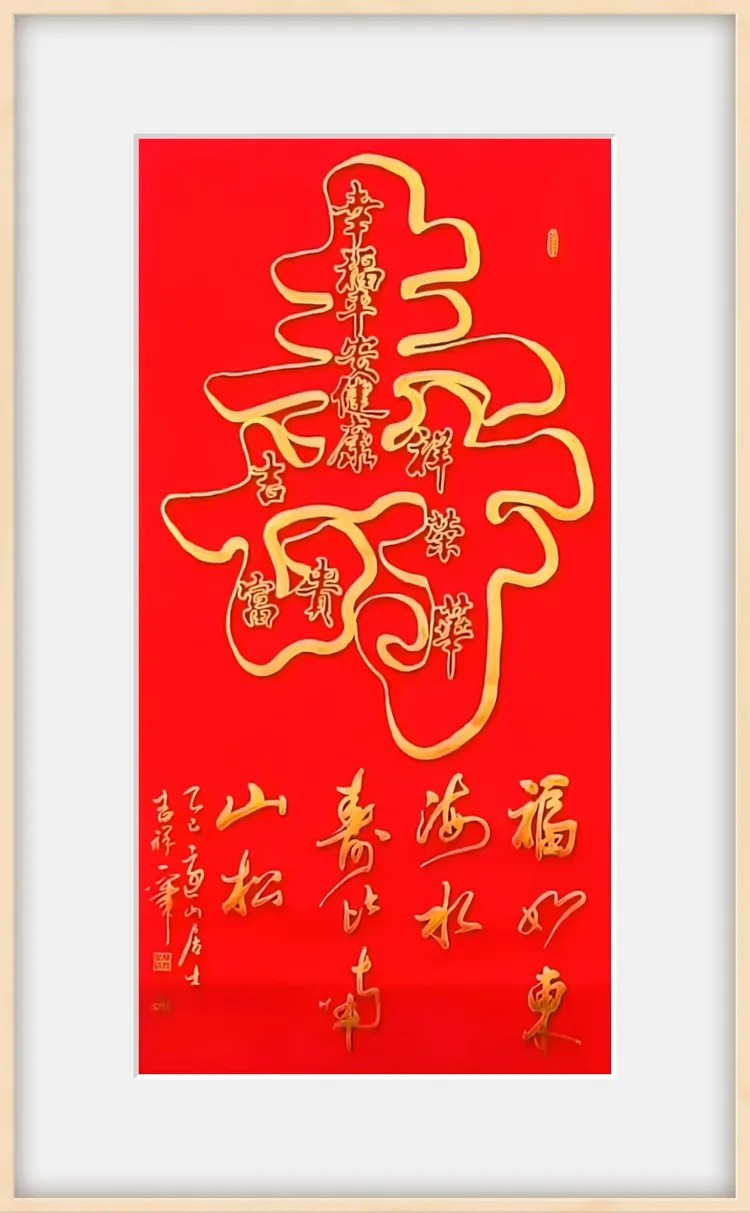 壽
幸福平安健康
吉祥
富貴
榮華
福如東
海水
壽比南
山松
乙巳 山居士
吉祥一筆